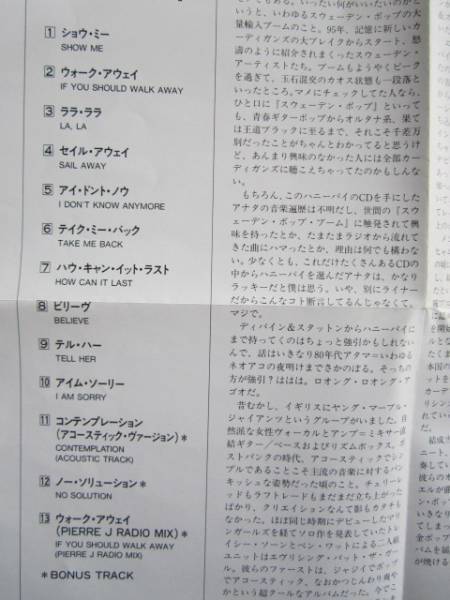 1 ショウ・ミー
SHOW ME
2 ウォーク・アウェイ
IF YOU SHOULD WALK AWAY
3 ララ・ララ
LA, LA
4 セイル・アウェイ
SAIL AWAY
5 アイ・ドント・ノウ
I DON'T KNOW ANYMORE
6 テイク・ミー・バック
TAKE ME BACK
7 ハウ・キャン・イット・ラスト
HOW CAN IT LAST
8 ビリーヴ
BELIEVE
9 テル・ハー
TELL HER
10 アイム・ソーリー
I AM SORRY
11 コンテンプレーション
(アコースティック・ヴァージョン)*
CONTEMPLATION
(ACOUSTIC TRACK)
12 ノー・ソリューション*
NO SOLUTION
13 ウォーク・アウェイ
(PIERRE J RADIO MIX)*
IF YOU SHOULD WALK AWAY
(PIERRE J RADIO MIX)
*BONUS TRACK
うと、いわゆるスウェーデン・ポップの大
量輸入ブームのこと。95年、記憶に新しいカー
ディガンズの大ブレイクからスタート、怒
濤のように紹介されまくったスウェーデン・
アーティストたち。ブームもようやくピーク
を過ぎて、玉石混交のカオス状態も一段落と
いったところ。マメにチェックしてた人なら、
ひと口に『スウェーデン・ポップ』といって
も、青春ギターポップからオルタナ系、果て
は王道ブラックに至るまで、それこそ千差万
別だったことがちゃんとわかってると思うけ
ど、あんまり興味のなかった人には全部カー
ディガンズに聴こえちゃってたのかもしんな
い。
もちろん、このハニーバイのCDを手にした
アナタの音楽遍歴は不明だし、世間の『スウ
ェーデン・ポップ・ブーム』に触発されて興
味を持ったとか、たまたまラジオから流れて
きた曲にハマったとか、理由は何でも構わな
い。少なくとも、これだけたくさんあるCDの
中からハニーバイを選んだアナタは、かなり
ラッキーだと僕は思う。いや、別にライナー
だからこんなコト断言してるんじゃなくて、
マジで。
ディバイン&スタットンからハニーバイに
まで持ってくのはちょっと強引かもしれない
んで、話はいきなり80年代アタマ=いわゆる
ネオアコの夜明けまでさかのぼる。そっちの
方が強引?ははは。ロオング・ロオング・ア
ゴオだ。
昔むかし、イギリスにヤング・マーブル・
ジャイアンツというグループがいました。自
然派な女性ヴォーカルとアンプ=ミキサー直
結ギター/ベースおよびリズムボックス。ポ
ストパンクの時代、アコースティックでシン
プルであることこそ主流の音楽に対するパン
キッシュな姿勢だった頃のこと。チェリーレ
ッドもラフトレードもまだまだ立ち上がった
ばかり、クリエイションなんて影もカタチも
なかった。ほぼ同じ時期にデビューしたマリ
ンガールズを経てソロ作を発表していたトレ
イシー・ソーンとベン・ワットによる二人組
ユニットはエヴリシング・バット・ザ・ガー
ル。彼らのファーストは、ジャジイでボップ
でアコースティック、なおかつとんわり爽や
かという超クールなアルバムだった。